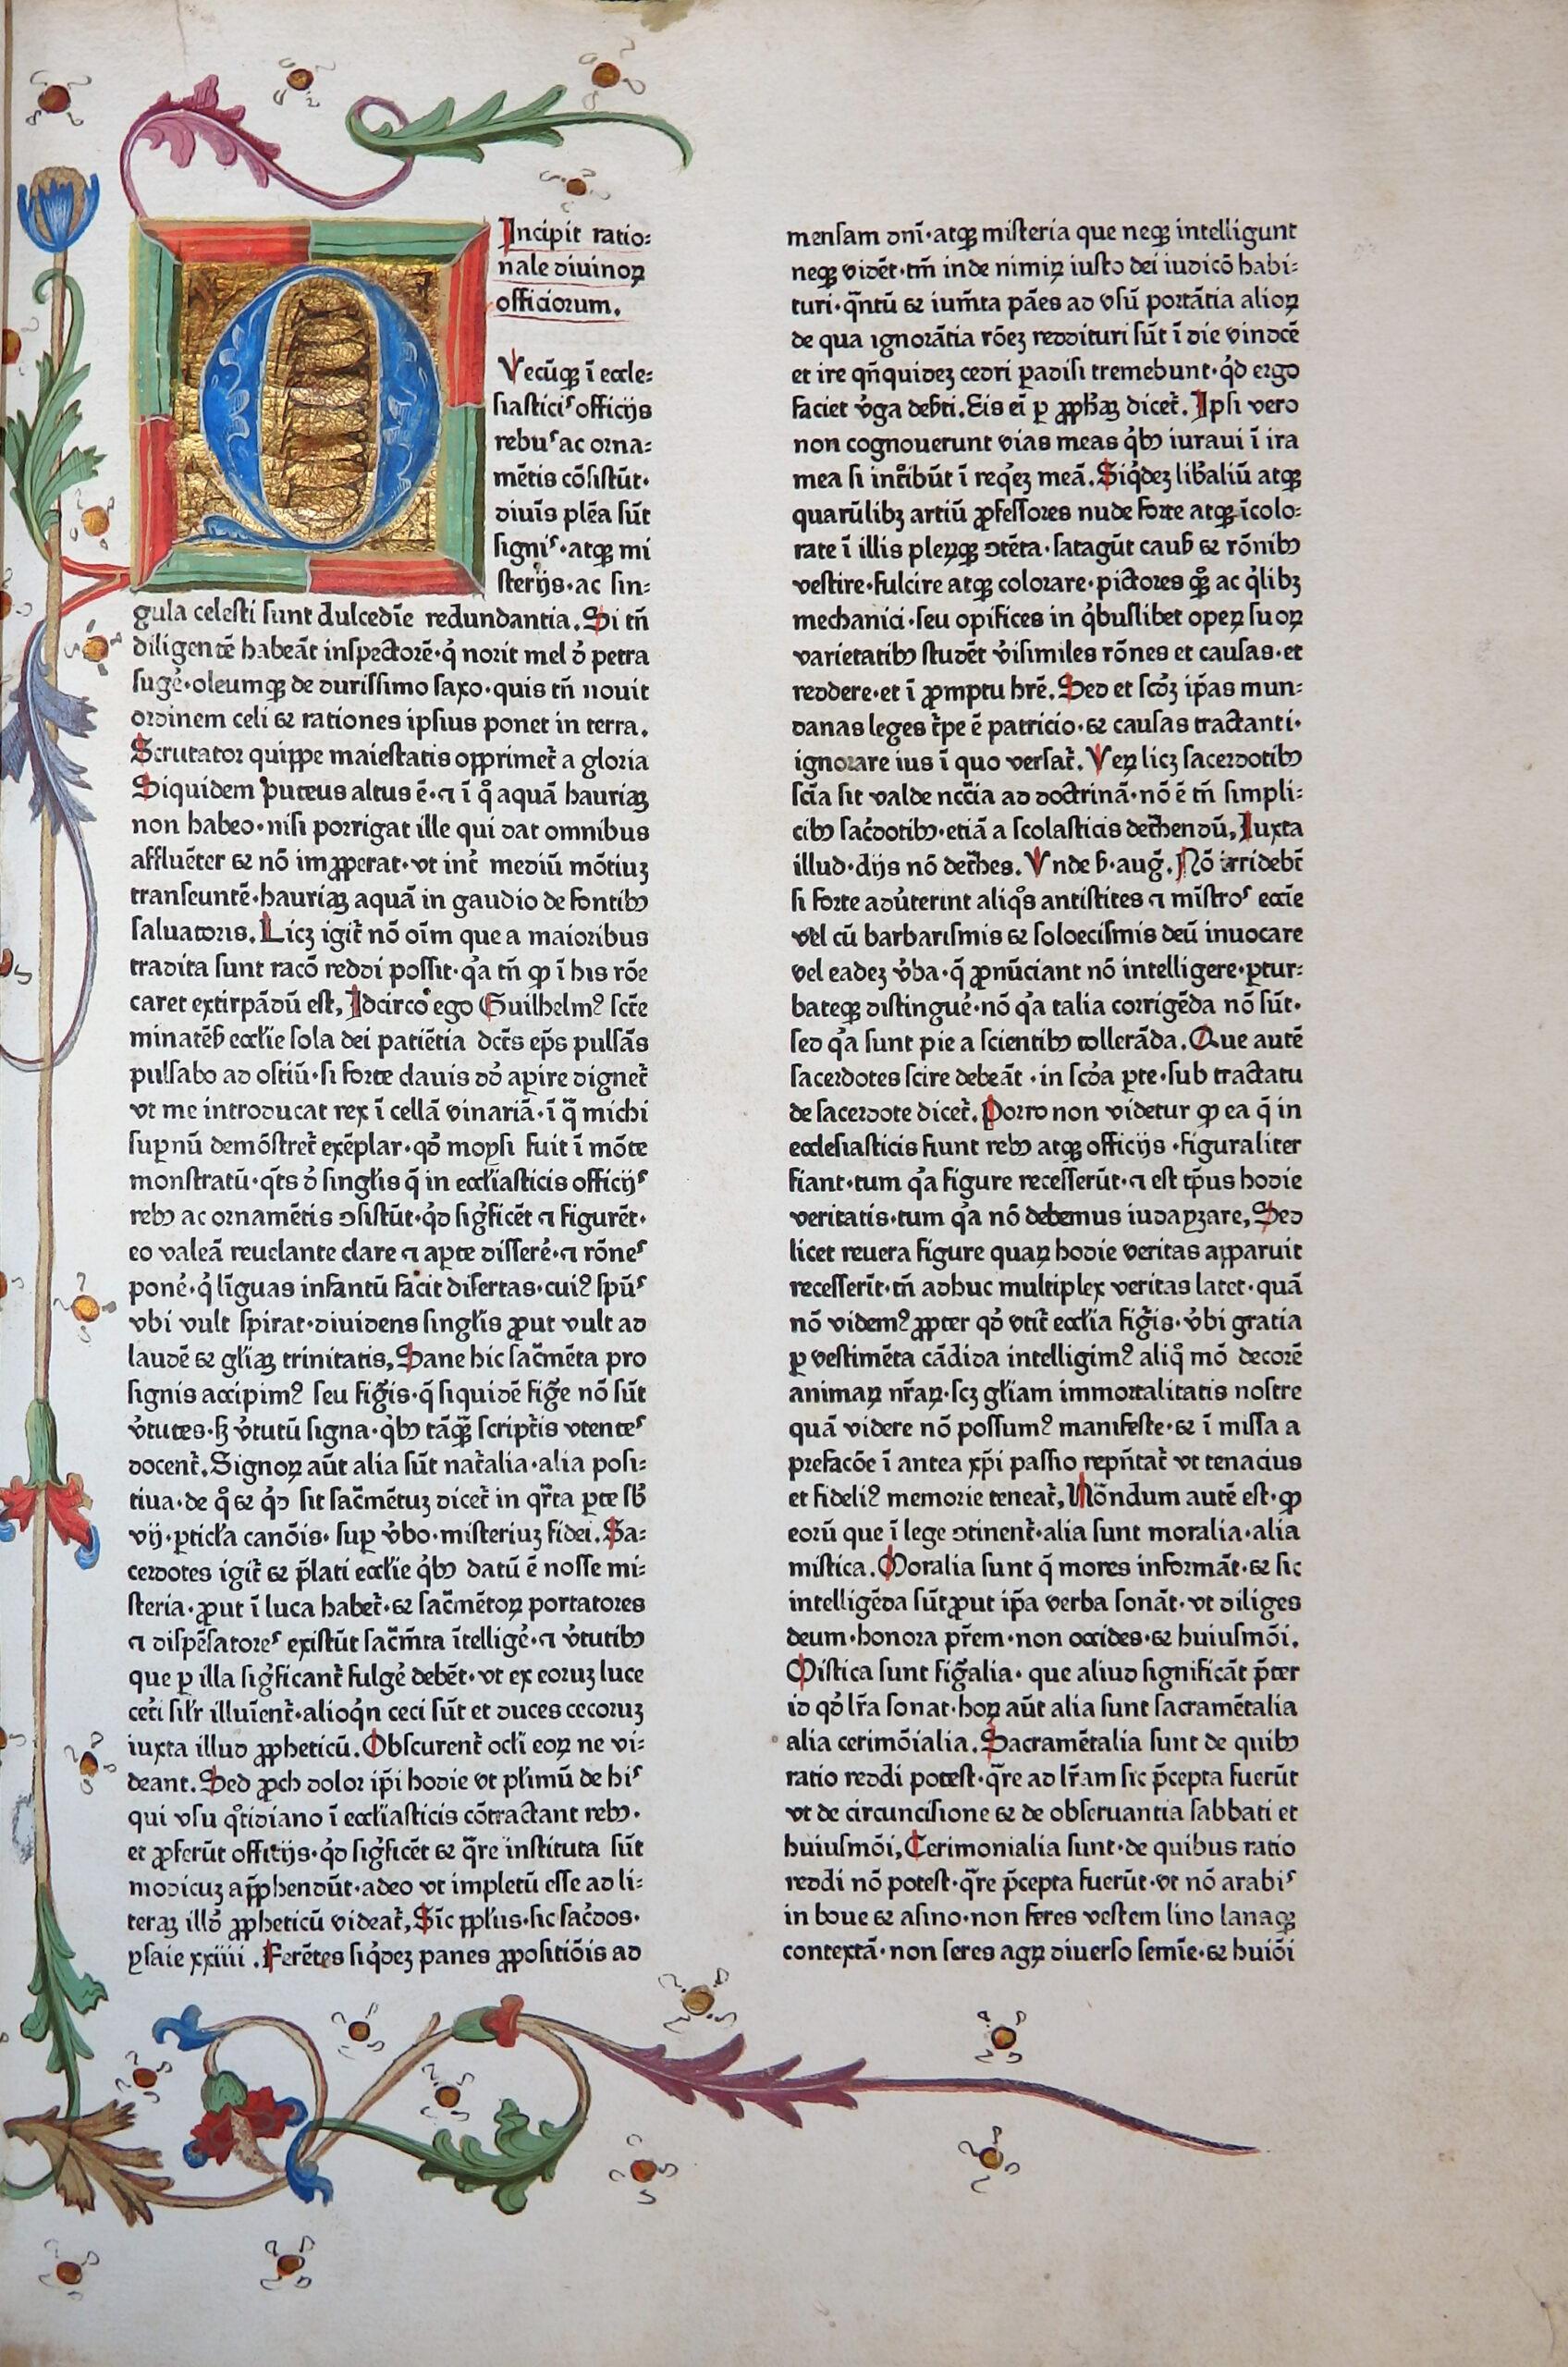 Incipit ratio⸗
nale diuinoꝝ
officiorum.
Q
Vecūqꝫ ī eccle⸗
siasticis officijs
rebus ac orna⸗
mētis cōsistūt·
diuīs plēa sūt
signis·atqꝫ mi
sterijs·ac sin⸗
gula celesti sunt dulcedīe redundantia. Si tn̄
diligentē habeāt inspectorē·q̇ norit mel ď petra
sugė·oleumqꝫ de durissimo saxo·quis tn̄ nouit
ordinem celi ⁊ rationes ipsius ponet in terra.
Scrutator quippe maiestatis opprimet᷑ a gloria
Siquidem puteus altus ē·⁊ ī q̊ aquā hauriaꝫ
non habeo·nisi porrigat ille qui dat omnibus
affluēter ⁊ nō imꝓperat·vt int᷑ mediū mōtiuꝫ
transeuntē·hauriaꝫ aquā in gaudio de fontibꝰ
saluatoris. Licꝫ igit᷑ nō oīm que a maioribus
tradita sunt racō reddi possit·q̇a tn̄ ꝙ ī his rōe
caret extirpādū est, Idcirco ego Guilhelmꝰ sct̄e
minatēẜ eccl̄ie sola dei patiētia dct̄s ep̄s pulsās
pulsabo ad ostiū·si forte clauis dď apire dignet᷑
vt me introducat rex ī cellā vinariā·ī q̄ michi
supnū demōstret᷑ exēplar·qď moysi fuit ī mōte
monstratū·q̇ts ď singl̄is q̄ in eccl̄iasticis officijs
rebꝰ ac ornamētis ↄsistūt·q̇d sig̊ficēt ⁊ figurēt·
eo valeā reuelante clare ⁊ apte disserė·⁊ rōnes
ponė·q̇ līguas infantū facit disertas·cuiꝰ spūs
vbi vult spirat·diuidens singl̄is ꝓut vult ad
laudē ⁊ gl̄iaꝫ trinitatis, Sane hic sac̄mēta pro
signis accipimꝰ seu fig̊is·q̄ siquidē fig̊e nō sūt
v̇tutes·sꝫ v̇tutū signa·q̇bꝰ tāq̄ꝫ script᷑is vtentes
docent᷑. Signoꝝ aūt alia sūt nat᷑alia·alia posi⸗
tiua·de q̊ ⁊ q̇d sit sac̄mētuꝫ dicet᷑ in qr̄ta pte sƀ
vij·pticl̄a canōis·sup v̇bo·misteriuꝫ fidei. Sa⸗
cerdotes igit᷑ ⁊ p̄lati eccl̄ie q̇bꝰ datū ē nosse mi⸗
steria·ꝓut ī luca habet᷑·⁊ sac̄mētoꝝ portatores
⁊ dispēsatores existūt sac̄m̄ta ītelligė·⁊ v̇tutibꝰ
que ꝑ illa sig̊ficant᷑ fulgė debēt·vt ex eoruꝫ luce
cet̄i sil̄r illuīent᷑·alioq̇n ceci sūt et duces cecoruꝫ
iuxta illud ꝓpheticū. Obscurent᷑ ocl̄i eoꝝ ne vi⸗
deant. Sed ꝓch dolor ip̄i hodie vt pl̄imū de his
qui vsu q̊tidiano ī eccl̄iasticis cōtractant rebꝰ·
et ꝓferūt officijs·q̇d sig̊ficēt ⁊ q̄re instituta sūt
modicuꝫ app̄hendūt·adeo vt impletū esse ad li⸗
teraꝫ illď ꝓpheticū videat᷑, Sic ppl̄us·sic sac̄dos·
ysaie xxiiii. Ferētes siq̇deꝫ panes ꝓpositiōis ad
mensam dnī·atqꝫ misteria que neqꝫ intelligunt
neqꝫ vidēt·tm̄ inde nimiꝝ iusto dei iudicō habi⸗
turi·q̄ntū ⁊ ium̄ta pāes ad vsū portātia alioꝝ
de qua ignorātia rōeꝫ reddituri sūt ī die vindcē
et ire qn̄quideꝫ cedri padisi tremebunt·q̇d ergo
faciet v̇ga deẜti. Eis ei ꝑ ꝓph̄aꝫ dicet᷑. Ipsi vero
non cognouerunt vias meas q̇bꝰ iuraui ī ira
mea si int᷑ibūt ī req̇eꝫ meā. Siq̇deꝫ lib̄aliū atqꝫ
quarūlibꝫ artiū ꝓfessores nude forte atqꝫ īcolo⸗
rate ī illis pleꝝqꝫ ↄtēta·satagūt cauẜ ⁊ rōnibꝰ
vestire·fulcire atqꝫ colorare·pictores qꝫ ac q̇libꝫ
mechanici·seu opifices in q̇buslibet opeꝝ suoꝝ
varietatibꝰ studēt v̇isimiles rōnes et causas·et
reddere·et ī ꝓmptu hr̄e. Sed et scďꝫ ip̄as mun⸗
danas leges t᷑pe ē patricio·⁊ causas tractanti·
ignorare ius ī quo versat᷑. Veꝝ licꝫ sacerdotibꝰ
scīa sit valde ncc̄ia ad doctrinā·nō ē tn̄ simpli⸗
cibꝰ sac̄dotibꝰ·etiā a scolasticis det᷑hendū, Iuxta
illud·dijs nō det᷑hes. Vnde ƀ·aug̊. Nō irridebt̄
si forte adv̇terint aliq̊s antistites ⁊ mīstros eccīe
vel cū barbarismis ⁊ soloecismis deū inuocare
vel eadeꝫ v̇ba·q̄ ꝓnūciant nō intelligere·ptur⸗
bateqꝫ distinguė·nō q̇a talia corrigēda nō sūt·
sed q̇a sunt pie a scientibꝰ tollerāda. Que autē
sacerdotes scire debeāt·in scďa pte·sub tractatu
de sacerdote dicet᷑. Porro non videtur ꝙ ea q̄ in
ecclesiasticis fiunt rebꝰ atqꝫ officijs·figuraliter
fiant·tum q̇a figure recesserūt·⁊ est tp̄us hodie
veritatis·tum q̇a nō debemus iudayzare, Sed
licet reuera figure quaꝝ hodie veritas apparuit
recesserīt·tn̄ adhuc multiplex veritas latet·quā
nō videmꝰ ꝓpter qď vtit᷑ eccl̄ia fig̊is·v̇bi gratia
ꝑ vestimēta cādida intelligimꝰ aliq̊ mō decorē
animaꝝ nr̄aꝝ·scꝫ gl̄iam immortalitatis nostre
quā videre nō possumꝰ manifeste·⁊ ī missa a
prefacōe ī antea xp̄i passio repn̄tat᷑ vt tenacius
et fideliꝰ memorie teneat᷑, Nōndum autē est·ꝙ
eorū que ī lege ↄtinent᷑·alia sunt moralia·alia
mistica. Moralia sunt q̄ mores informāt·⁊ sic
intelligēda sūt ꝓut ip̄a verba sonāt·vt diliges
deum·honora pr̄em·non occides·⁊ huiusmōi.
Mistica sunt fig̊alia·que aliud significāt p̄ter
id qď lr̄a sonat·hoꝝ aūt alia sunt sacramētalia
alia cerimōialia. Sacramētalia sunt de quibꝰ
ratio reddi potest·q̄re ad lr̄am sic p̄cepta fuerūt
vt de circuncisione ⁊ de obseruantia sabbati et
huiusmōi, Cerimonialia sunt·de quibus ratio
reddi nō potest·q̄re p̄cepta fuerūt·vt nō arabis
in boue ⁊ asino·non feres vestem lino lanaqꝫ
contextā·non seres agꝝ diuerso semīe·⁊ huiōi